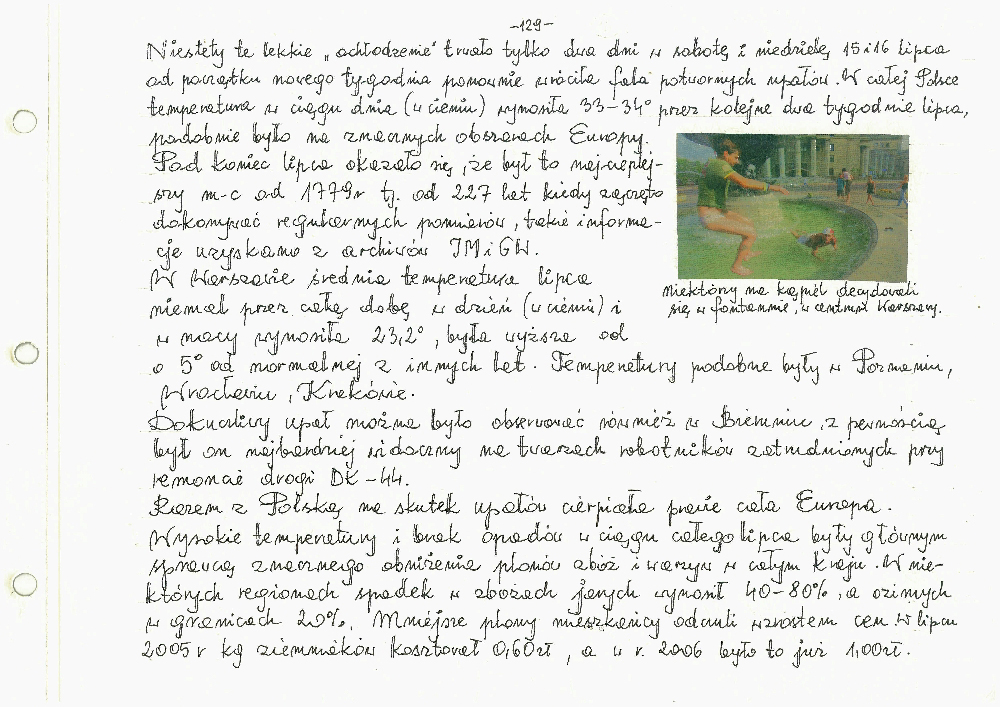 -129-
Niestety te lekkie „ochłodzenie" trwało tylko dwa dni w sobotę i niedzielę 15 i 16 lipca
od początku nowego tygodnia ponownie wróciła fala potwornych upałów. W całej Polsce
temperatura w ciągu dnia (w cieniu) wynosiła 33-34° przez kolejne dwa tygodnie lipca,
podobnie było na znacznych obszarach Europy.
Pod koniec lipca okazało się, że był to najcieplej-
szy m-c od 1779r tj. od 227 lat kiedy zaczęto
dokonywać regularnych pomiarów, takie informa-
cje uzyskano z archiwów IMiGW.
W Warszawie średnia temperatura lipca
niemal przez całą dobę w dzień (w cieniu) i
w nocy wynosiła 23,2°, była wyższa od
o 5° od normalnej z innych lat. Temperatury podobne były w Poznaniu,
Wrocławiu, Krakowie.
niektórzy na kąpiel decydowali
się w fontannie, w centrum Warszawy.
Dokuczliwy upał można było obserwować również w Bieruniu, z pewnością
był on najbardziej widoczny na twarzach robotników zatrudnionych przy
remoncie drogi DK-44.
Razem z Polską na skutek upałów cierpiała prawie cała Europa.
Wysokie temperatury i brak opadów w ciągu całego lipca były głównym
sprawcą znacznego obniżenia plonów zbóż i warzyw w całym kraju. W nie-
których regionach spadek w zbożach jarych wynosił 40-80%, a ozimych
w granicach 20%. Mniejsze plony mieszkańcy odczuli wzrostem cen. W lipcu
2005 r kg ziemniaków kosztował 0,60zł, a w r. 2006 było to już 1,00zł.